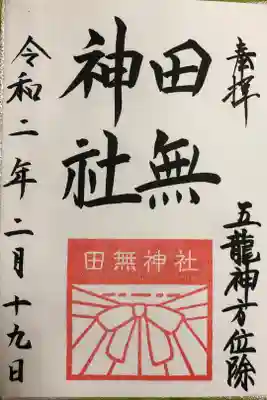 奉拝
五龍神方位除
田無
神社
田無神社
令和二年二月十九日